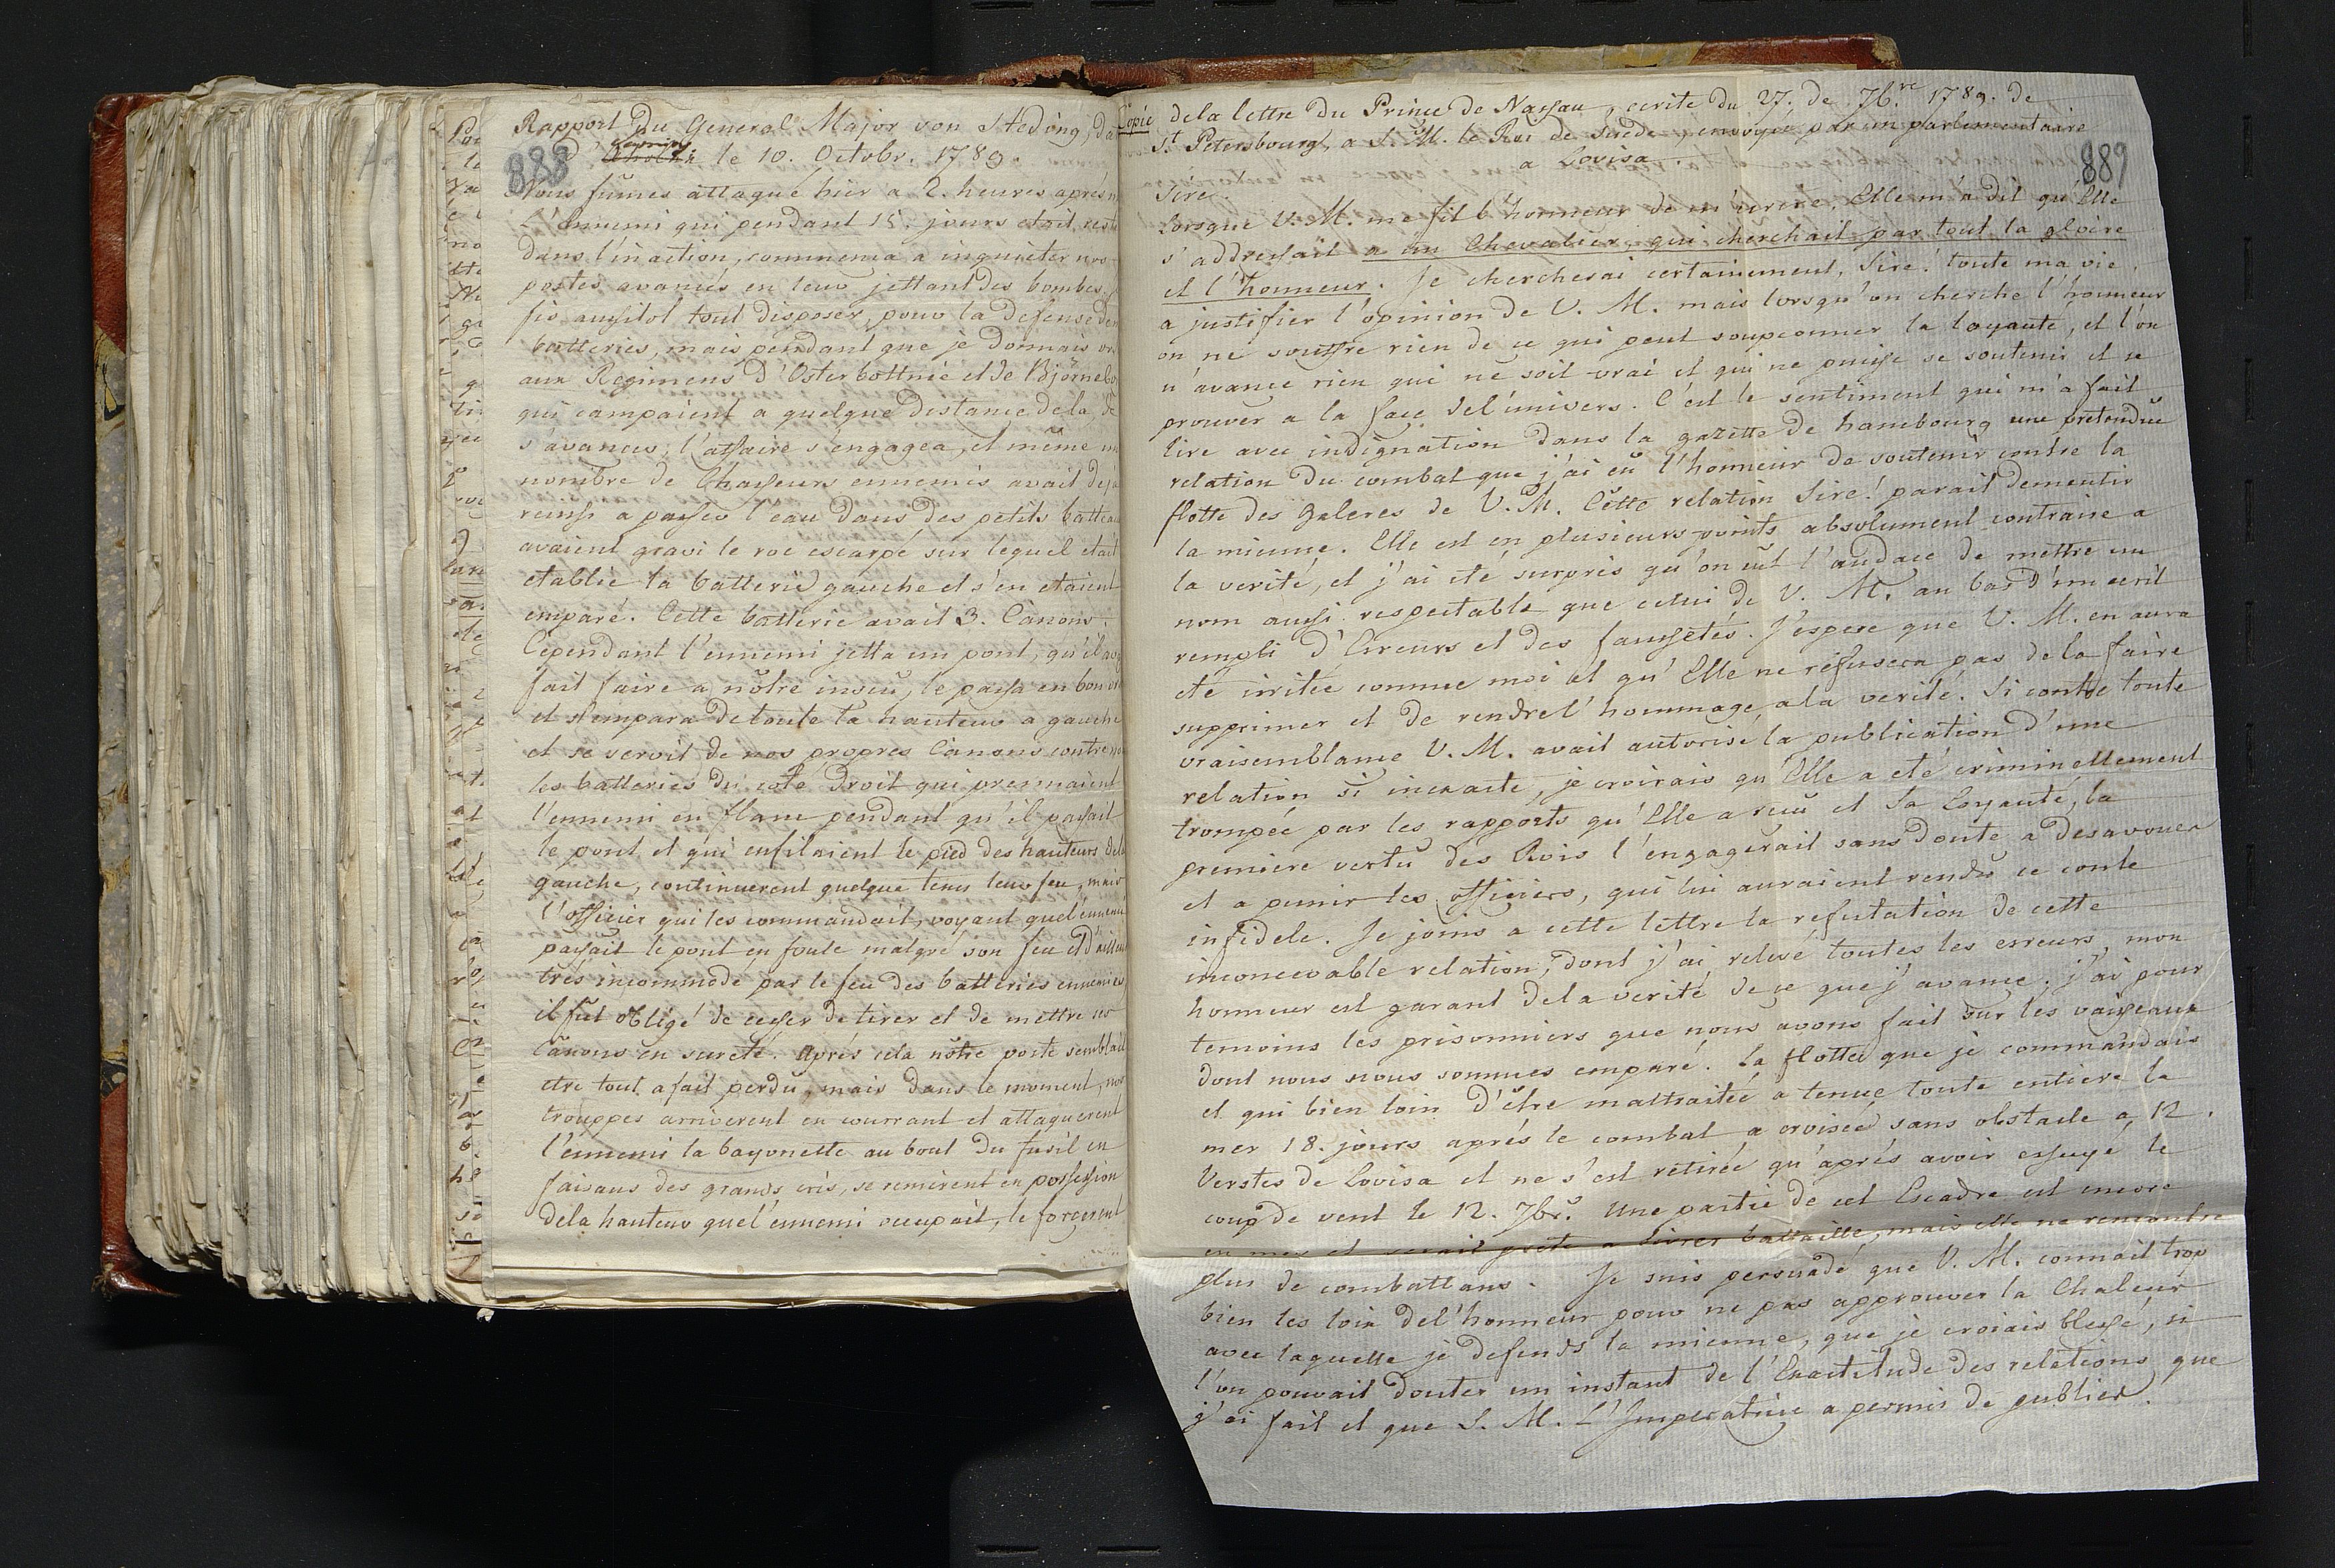 Rapport du General Major von Steding, da
888
le 10. Octobr. 1789.
Nous fûmes attaqué hier a 2. heures après m
L'Ennemi qui pendant 15. jours etoit resté
dans l'inaction, commenca a inquieter nos
postes avancés en leur jettant des bombes, j
fis aussitot tout disposer, pour la defense de n
batteries, mais pendant que je donnais or
aux Regimens d'Osterbottnie et de Björnebo
qui campaient a quelque distance de la, de
s'avancer, l'affaire s'engagea, et même un
nombre de Chasseurs ennemis avait dejà
reussi a passer l'eau dans des petits batteau
avaient gravi le roc escarpé sur lequel etait
etablie la batterie gauche et s'en etaient
emparé. Cette batterie avait 3. Canons.
Cependant l'ennemi jetta un pont, qu'il avo
fait faire a nôtre insçu, le passa en bon or
et s'empara de toute la hauteur a gauche
et se servit de nos propres Canons contre no
les batteries du coté droit qui prennaient
l'ennemi en flanc pendant qu'il passait
le pont et qui enfilaient le pied des hauteurs de la
gauche, continuerent quelque tems leur feu, mais
l'officier qui les commandait, voyant quel'ennemi
passait le pont en foule malgré son feu et d'ailleur
trés incommodé par le feu des batteries ennemies,
il fut obligé de cesser de tirer et de mettre se
Canons en sureté. Après cela nôtre poste semblait
etre tout a fait perdu, mais dans le moment, nos
trouppes arriverent en courrant et attaquerent
l'ennemi la bayonette au bout du fusil en
faisans des grands cris, se remirent en possession
dela hauteur quel'ennemi occupait, le forcerent
Copie dela lettre du Prince de Nassau, ecrite du 27. de 7b.re 1789. de
St. Petersbourg, a S. M. le Roi de Suede, envoyée par un parlementaire
a Lovisa.
889
Sire.
Lorsque V. M. me fit l'honneur de m'ecrire, Elle m'a dit qu'Elle
s'addressait a un Chevalier, qui cherchait par tout la gloire
et l'honneur. Je chercherai certainement, Sire! toute ma vie,
a justifier l'opinion de V. M. mais lorsqu'on cherche l'honneur
on ne souffre rien de ce qui peut soupconner la loyauté, et l'on
n'avance rien qui ne soit vrai et qui ne puisse se soutenir et se
prouver a la face del'univers. C'est le sentiment qui m'a fait
lire avec indignation dans la gazette de hambourg une pretendue
relation du combat que j'ai eû l'honneur de soutenir contre la
flotte des Galeres de V. M. Cette relation Sire! parait dementir
la mienne. Elle est en plusieurs points absolument contraire a
la verité, et j'ai eté surpris qu'on eut l'audace de mettre un
nom aussi respectable que celui de V. M. au bas d'un ecrit
rempli d'Erreurs et des faussetés. J'espere que V. M. en aura
eté irritée comme moi et qu'Elle ne refusera pas de la faire
supprimer et de rendre l'hommage a la verité. Si contre toute
vraisemblance V. M. avait autorisé la publication d'une
relation si inexacte, je croirais qu'Elle a eté criminellement
trompée par les rapports qu'Elle a reçu et Sa Loyauté, la
premiere vertu des Rois l'engagerait sans doute a desavouer
et a punir les officiers, qui lui auraient rendu ce conte
infidele. Je joins a cette lettre la refutation de cette
inconcevable relation, dont j'ai relevé toutes les erreurs, mon
honneur est garant dela verité de ce que j'avance. j'ai pour
temoins les prisonniers que nous avons fait sur les vaisseaux
dont nous nous sommes emparé. La flotte que je commandais
et qui bien loin d'être maltraitée a tenue toute entiere la
mer 18. jours aprés le combat a croisée sans obstacle a 12.
Verstes de Lovisa et ne s'est retirée qu'après avoir essuyé le
coup de vent le 12. 7br. Une partie de cet Escadre est encore
en mer et serait prête a livrer battaille, mais elle ne rencontre
plus de combattans. Je suis persuadé que V. M. connait trop
bien les loix del'honneur pour ne pas approuver la Chaleur
avec laquelle je defends la mienne, que je croiais blessé, si
l'on pouvait douter un instant de l'Exactitude des relations que
j'ai fait et que S. M. L'Imperatrice a permis de publier.